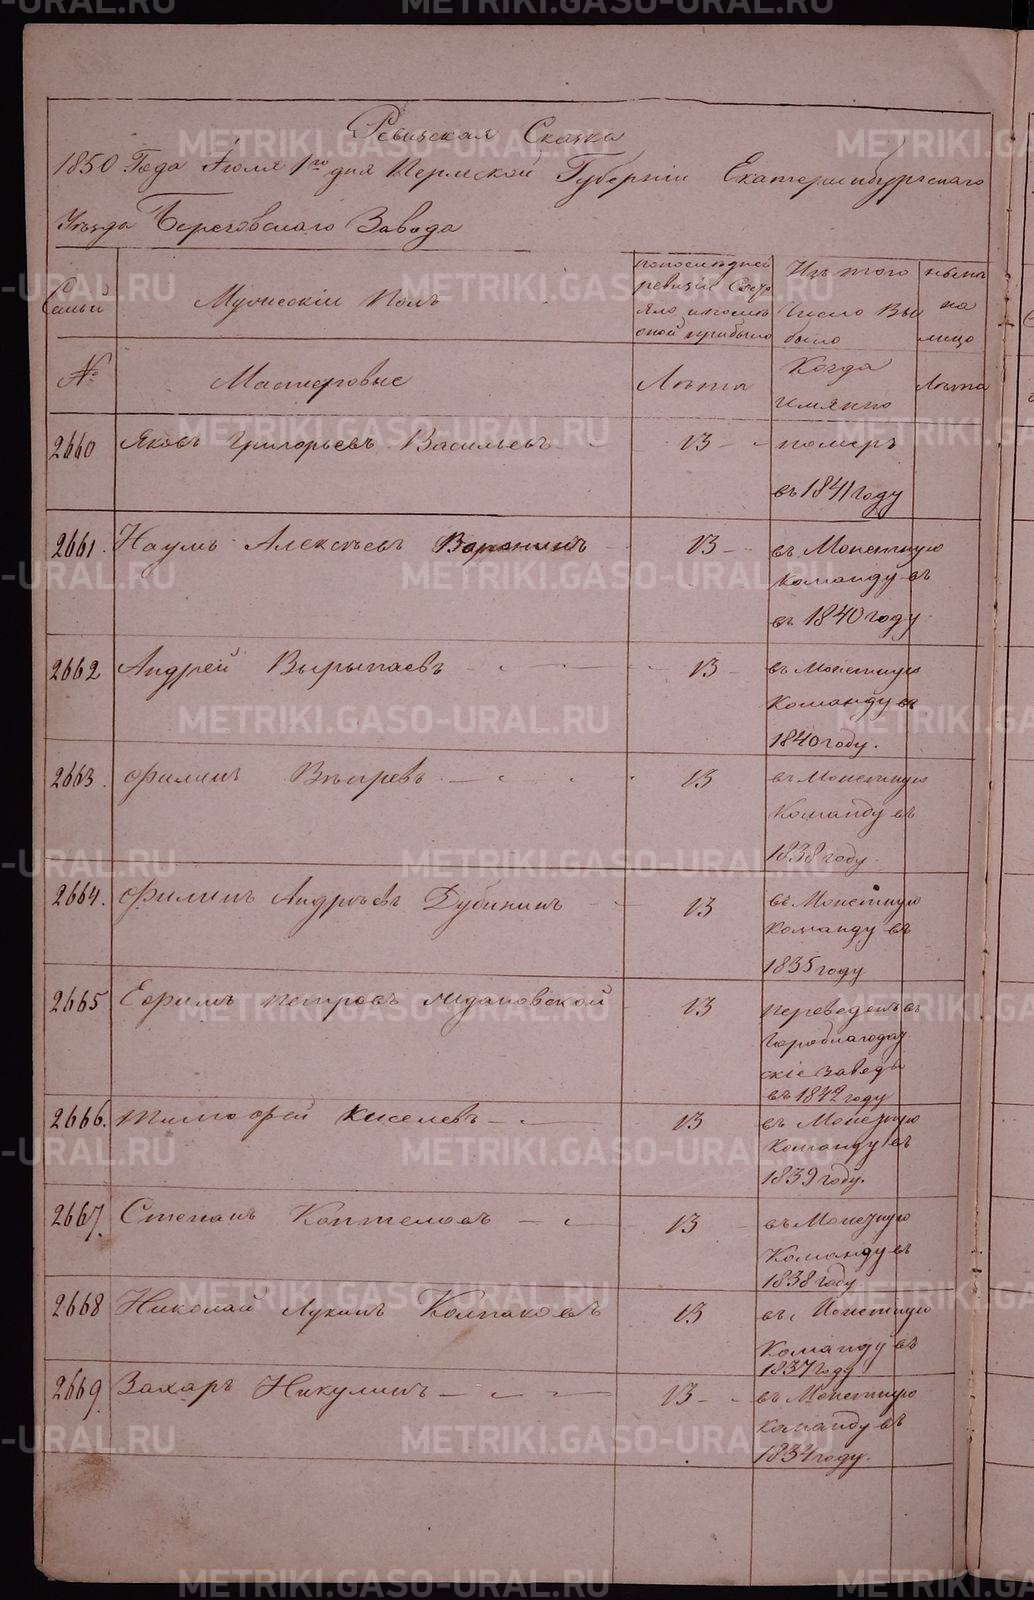 Ревизская Сказка
1850 Года Июля 1го дня Пермской Губернии Екатеринбургскаго
Уезда Березовскаго Завода
Семьи
Мужескій Полъ
по последней
ревизіи Состо
яло и после
оной прибыло
Изъ того
Число Вы
было
ныне
на
лицо
№
Мастеровые
Лѣта
Когда
имянно
Лѣта
2660 Яковъ Григорьевъ Васильевъ 13 померъ
въ 1841 году
2661. Наумъ Алексѣевъ Воронинъ 13 въ Монетную
Команду въ
въ 1840 году
2662 Андрей Вырыпаевъ 13 въ Монетную
Команду въ
1840 году.
2663. Филипъ 13 въ Монетную
Команду въ
1838 году.
2664. Филипъ Андреевъ Дубининъ 13 въ Монетную
Команду въ
1835 году
2665 Ефимъ Петровъ Ждановской 13 переведенъ въ
Гороблагодат
скіе Заводы
въ 1842 году
2666. Тимофей Киселевъ 13 въ Монетную
Команду въ
1839 году.
2667. Степанъ Коптеловъ 13 въ Монетную
Команду въ
1838 году
2668 Николай Лукинъ Колпаковъ 13 въ Монетную
Команду въ
1837 году
2669. Захаръ Никулинъ 13 въ Монетную
Команду въ
1834 году.
METRIKI.GASO-URAL.RU